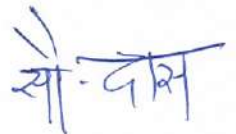 सौ. दास